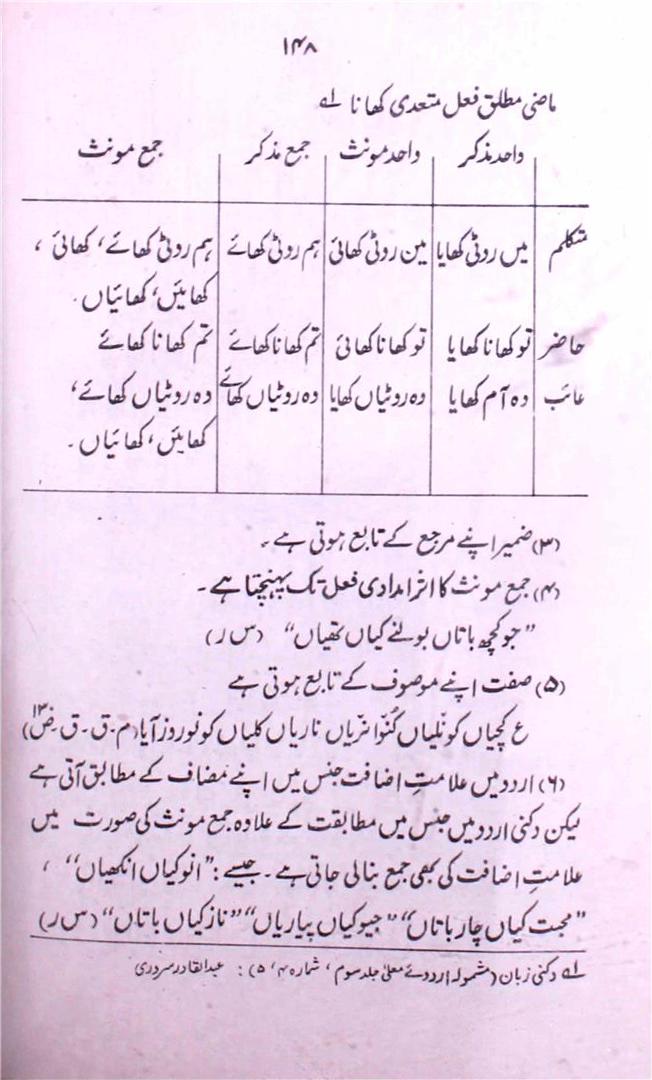 ۱۴۸
ماضی مطلق فعل متعدی کھانا لہ
واحد مذکر | واحد مونث | جمع مذکر | جمع مونث
متکلم | میں روٹی کھایا | مین روٹی کھائی | ہم روٹی کھائے | ہم روٹی کھائے، کھائی،
کھایئں، کھائیاں۔
حاضر | تو کھانا کھایا | تو کھانا کھائی | تم کھانا کھائے | تم کھانا کھائے
غائب | وہ آم کھایا | وہ روٹیاں کھایا | وہ روٹیاں کھائے | وہ روٹیاں کھائے،
کھایئں، کھائیاں۔
(۳) ضمیر اپنے مرجع کے تابع ہوتی ہے۔
(۴) جمع مونث کا اثر امدادی فعل تک پہنچتا ہے۔
"جو کچھ باتاں بولنے کیاں تھیاں" (س ر)
(۵) صفت اپنے موصوف کے تابع ہوتی ہے
ع کچیاں کونلیاں کنوانریاں ناریاں کلیاں کو نوروز آیا (م۔ق۔ق۔ض ۱۳)
(۶) اردو میں علامتِ اضافت جنس میں اپنے مضاف کے مطابق آتی ہے
لیکن دکنی اردو میں جنس میں مطابقت کے علاوہ جمع مونث کی صورت میں
علامتِ اضافت کی بھی جمع بنالی جاتی ہے۔ جیسے: "انو کیاں انکھیاں"،
"محبت کیاں چار باتاں" "جیو کیاں پیاریاں" "ناز کیاں باتاں" (س ر)
لہ دکنی زبان (مشمولہ اردوئے معلیٰ جلد سوم، شمارہ ۴، ۵): عبدالقادر سروری